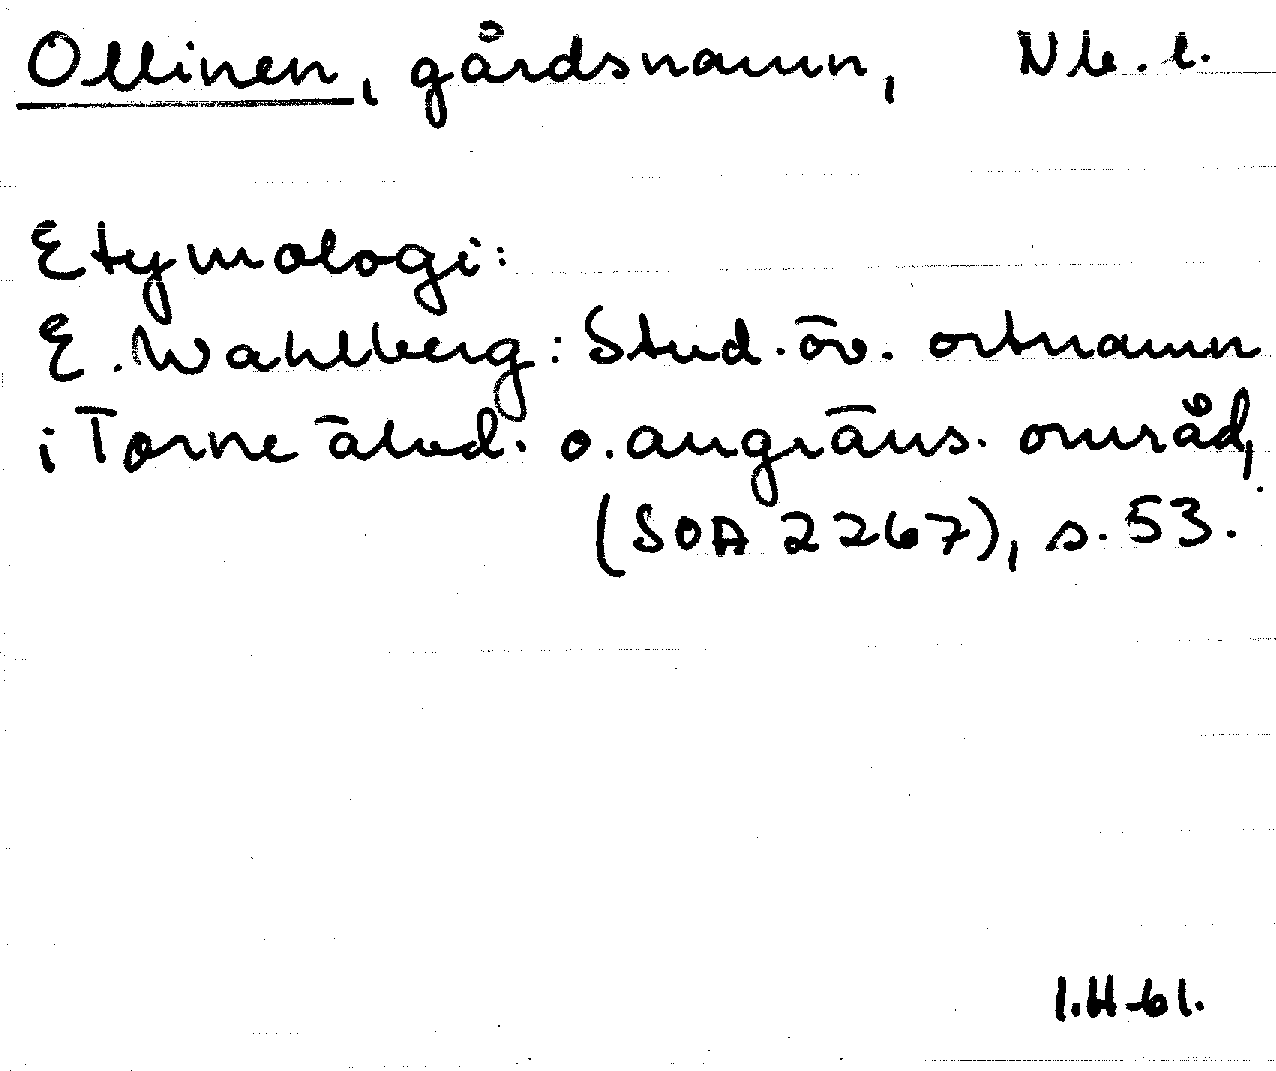 Ollinen, gårdsnamn, Nb. l.
Etymologi:
E. Wahlberg: Stud. öv. ortnamn
i Torne älvd. o. angräns. områd,
(SOA 2267), s. 53.
I.H-61.